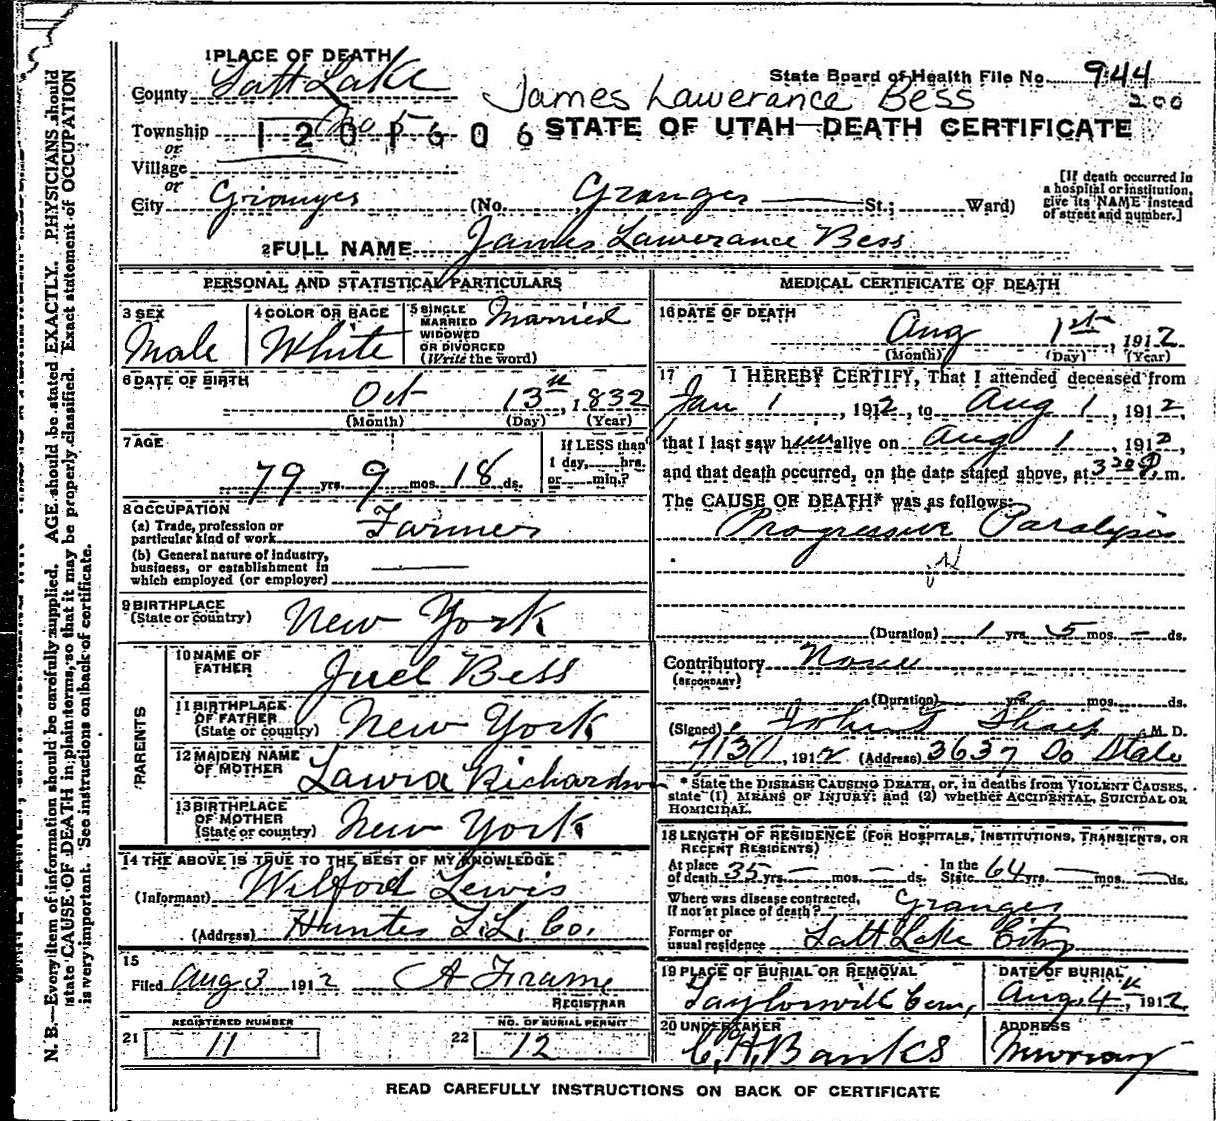 1 PLACE OF DEATH
County Salt Lake
State Board of Health File No. 944
200
James Lawerance Bess
Township 1201606
STATE OF UTAH—DEATH CERTIFICATE
or
Village
or
City Granger (No. Granger St.; Ward)
[If death occurred in
a hospital or institution,
give its NAME instead
of street and number.]
2 FULL NAME James Lawerance Bess
PERSONAL AND STATISTICAL PARTICULARS
3 SEX
Male
4 COLOR OR RACE
White
5 SINGLE
MARRIED
WIDOWED
OR DIVORCED
(Write the word)
Married
6 DATE OF BIRTH
Oct 13th, 1832
(Month) (Day) (Year)
7 AGE
79 yrs. 9 mos. 18 ds.
If LESS than
1 day, hrs.
or min.?
8 OCCUPATION
(a) Trade, profession or
particular kind of work Farmer
(b) General nature of industry,
business, or establishment in
which employed (or employer)
9 BIRTHPLACE
(State or country) New York
PARENTS
10 NAME OF
FATHER Juel Bess
11 BIRTHPLACE
OF FATHER
(State or country) New York
12 MAIDEN NAME
OF MOTHER Laura Richardson
13 BIRTHPLACE
OF MOTHER
(State or country) New York
14 THE ABOVE IS TRUE TO THE BEST OF MY KNOWLEDGE
(Informant) Wilford Lewis
(Address) Hunter S.L. Co.
15
Filed Aug 3 1912 A Frame
REGISTRAR
REGISTERED NUMBER
21 11
NO. OF BURIAL PERMIT
22 12
MEDICAL CERTIFICATE OF DEATH
16 DATE OF DEATH
Aug 1st, 1912
(Month) (Day) (Year)
17 I HEREBY CERTIFY, That I attended deceased from
Jan 1, 1912, to Aug 1, 1912,
that I last saw him alive on Aug 1, 1912,
and that death occurred, on the date stated above, at 3 20 P. m.
The CAUSE OF DEATH* was as follows:
Progressive Paralysis
(Duration) 1 yrs. 5 mos. — ds.
Contributory None
(SECONDARY)
(Duration) yrs. mos. ds.
(Signed) John M. D.
7/31, 1912 (Address) 3637 So State
* State the DISEASE CAUSING DEATH, or, in deaths from VIOLENT CAUSES,
state (1) MEANS OF INJURY; and (2) whether ACCIDENTAL, SUICIDAL OR
HOMICIDAL.
18 LENGTH OF RESIDENCE (FOR HOSPITALS, INSTITUTIONS, TRANSIENTS, OR
RECENT RESIDENTS)
At place
of death 35 yrs. — mos. — ds.
In the
State 64 yrs. — mos. — ds.
Where was disease contracted,
if not at place of death? Granger
Former or
usual residence Salt Lake City
19 PLACE OF BURIAL OR REMOVAL
Taylorsvill Cem,
DATE OF BURIAL
Aug. 4th, 1912
20 UNDERTAKER
C. H. Banks
ADDRESS
Murray
READ CAREFULLY INSTRUCTIONS ON BACK OF CERTIFICATE
N. B.—Every item of information should be carefully supplied. AGE should be stated EXACTLY. PHYSICIANS should
state CAUSE OF DEATH in plain terms, so that it may be properly classified. Exact statement of OCCUPATION
is very important. See instructions on back of certificate.